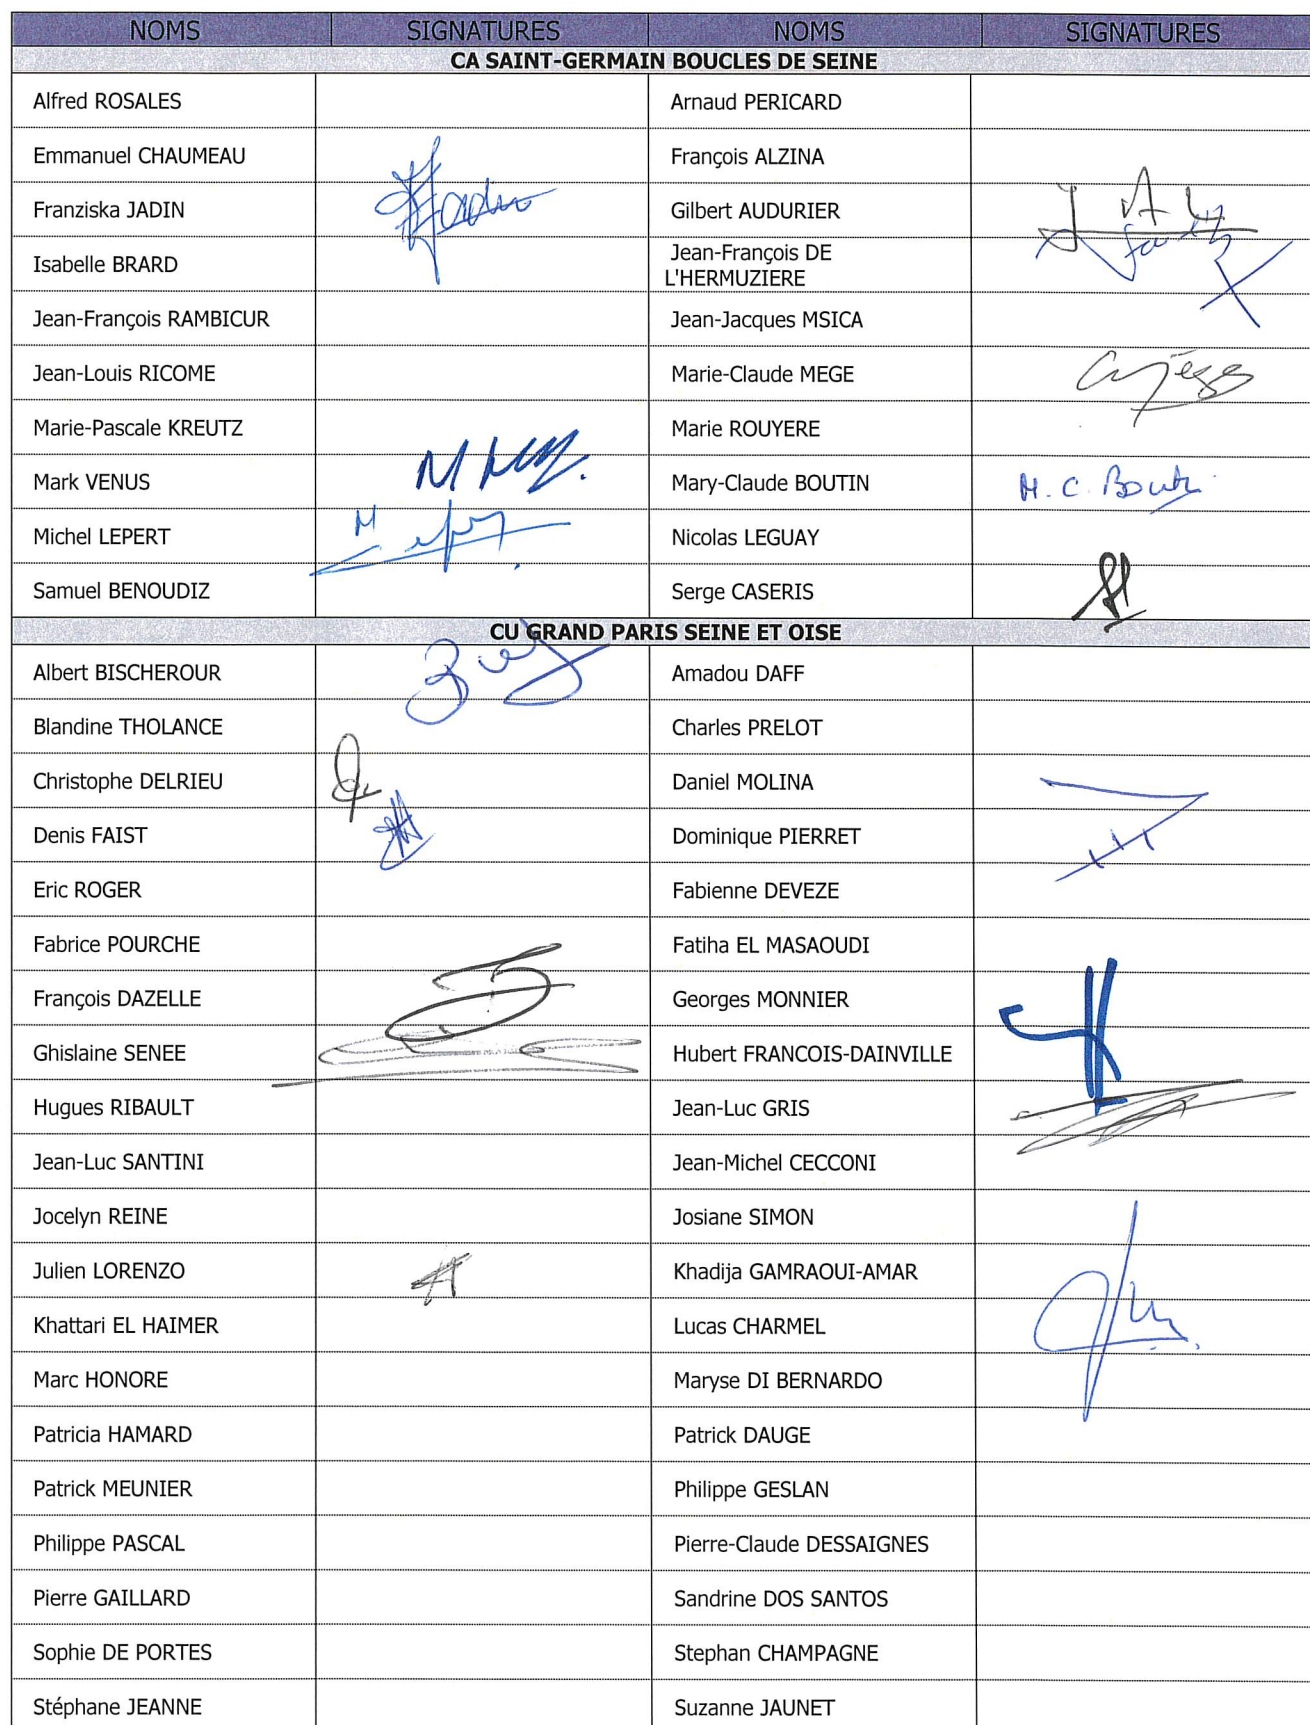 NOMS SIGNATURES NOMS SIGNATURES
CA SAINT-GERMAIN BOUCLES DE SEINE
Alfred ROSALES Arnaud PERICARD
Emmanuel CHAUMEAU François ALZINA
Franziska JADIN Gilbert AUDURIER
Isabelle BRARD Jean-François DE
L'HERMUZIERE
Jean-François RAMBICUR Jean-Jacques MSICA
Jean-Louis RICOME Marie-Claude MEGE
Marie-Pascale KREUTZ Marie ROUYERE
Mark VENUS Mary-Claude BOUTIN M. C. Boutin
Michel LEPERT Nicolas LEGUAY
Samuel BENOUDIZ Serge CASERIS
CU GRAND PARIS SEINE ET OISE
Albert BISCHEROUR Amadou DAFF
Blandine THOLANCE Charles PRELOT
Christophe DELRIEU Daniel MOLINA
Denis FAIST Dominique PIERRET
Eric ROGER Fabienne DEVEZE
Fabrice POURCHE Fatiha EL MASAOUDI
François DAZELLE Georges MONNIER
Ghislaine SENEE Hubert FRANCOIS-DAINVILLE
Hugues RIBAULT Jean-Luc GRIS
Jean-Luc SANTINI Jean-Michel CECCONI
Jocelyn REINE Josiane SIMON
Julien LORENZO Khadija GAMRAOUI-AMAR
Khattari EL HAIMER Lucas CHARMEL
Marc HONORE Maryse DI BERNARDO
Patricia HAMARD Patrick DAUGE
Patrick MEUNIER Philippe GESLAN
Philippe PASCAL Pierre-Claude DESSAIGNES
Pierre GAILLARD Sandrine DOS SANTOS
Sophie DE PORTES Stephan CHAMPAGNE
Stéphane JEANNE Suzanne JAUNET